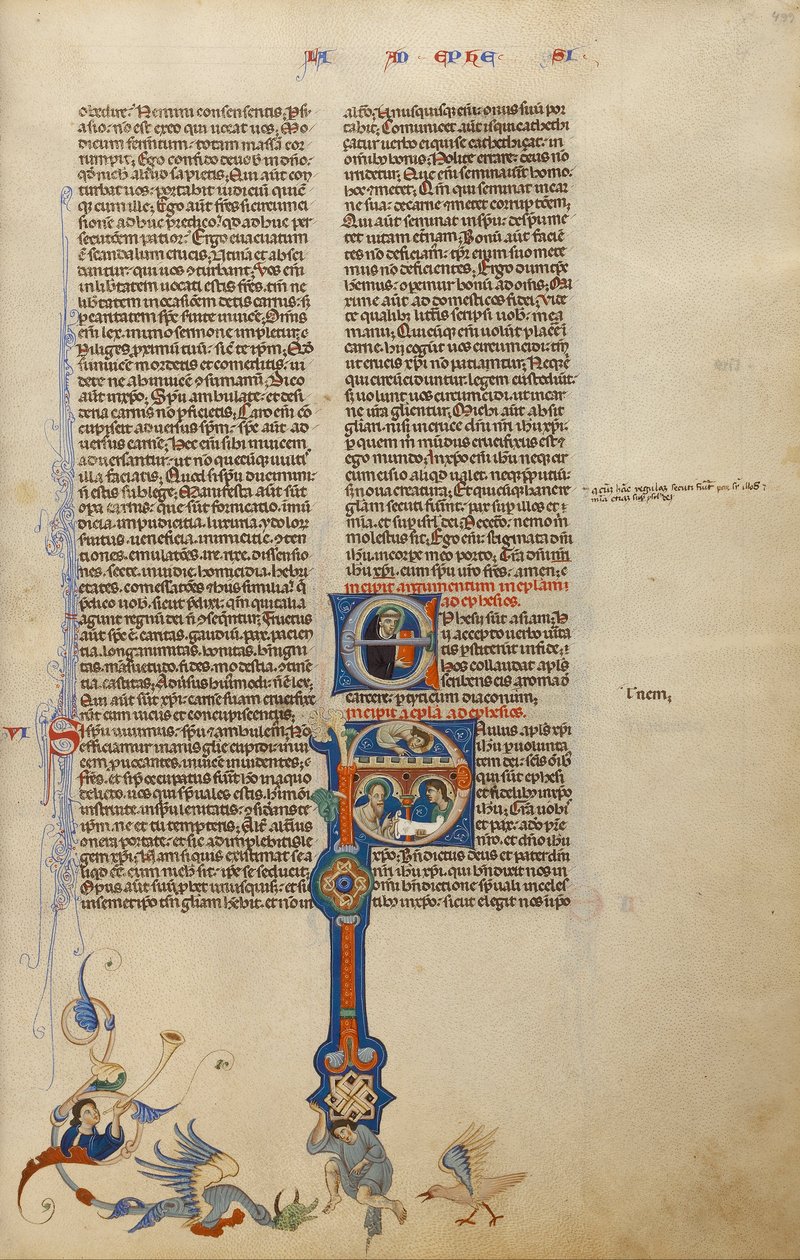 LA AD EPHE SI
499
obedire. Nemini consenseritis. Psu
asio. nō est ex eo qui uocat uos. Mo
dicum fermtum. totam massā cor
rumpit. Ego confido de uob in dño.
qđ nich aliud sapietis. Qui aūt con
turbat uos. portabit iudiciū quicū
q; eum ille. Ego aūt frēs si circumci
sionē adhuc predico. qđ adhuc per
secutōem patior. Ergo euacuatum
ē scandalum crucis. Utinā et absci
dantur. qui uos 9turbant. Vos eīn
in libtatem uocati estis frēs. tm̄ ne
libtatem in occasiōem detis carnis. s;
p caritatem spc̄ seruite inuicē. Omis
eīn lex. in uno sermone impletur. 
Diliges proximū tuū. sic̄ te ipm. Qđ
si inuicē mordetis et comeditis. ui
dete ne ab inuicē 9sumamī. Dico
aūt in xp̄o. Sp̄u ambulate. et desi
deria carnis nō pficietis. Caro eīn cō
cupiscit aduersus sp̄m. sp̄c aūt ad
uersus carnē. Hec eīn sibi inuicem
aduersantur. ut nō quecūq; uultis
illa faciatis. Quod si sp̄u ducimini.
n̄ estis sub lege. Manifesta aūt sūt
opa carnis. que sūt fornicatio. īmū
dicia. impudicitia. luxuria. ydolor
seruitus. ueneficia. inimicicie. 9ten
tiones. emulatōes. ire. rixe. dissensio
nes. secte. inuidie. homicidia. hebri
etates. comessatōes. 7 hiis similia. q̄
pdico uob. sicut pdixi. qm̄ qui talia
agunt regnū dei n̄ 9seqūntur. Fructus
aūt sp̄c ē. caritas. gaudiū. pax. pacien
tia. longanimitas. bonitas. benigni
tas. māsuetudo. fides. modestia. 9tinē
tia. castitas. Aduersus huiusmodi. n̄ ē lex.
Qui aūt sūt xp̄i. carnē suam crucifixe
rūt cum uiciis et concupiscentiis.
VI
Si sp̄u uiuimus. sp̄u 7 ambulem. Nō
efficiamur inanis glie cupidi. inui
cem puocantes. inuicē inuidentes.
frēs. et si p̄occupatus fuūt hō in aliquo
delicto. uos qui sp̄uales estis. huiusmōi
instruite. in sp̄u lenitatis. 9siderans te
ipm. ne et tu tempteris. Alt̄ alt̄ius
onera portate. et sic adimplebitis le
gem xp̄i. Nam si quis existimat se a
liqđ eē. cum nich sit. ipe se seducit.
Opus aūt suū p̄bet unusquisq;. et si
in semet ipo tm̄ gliam hēbit. et nō in
alt̄o. Unusquisq; eīn. onus suū por
tabit. Comunicet aūt is qui cathethi
çatur uerbo. ei qui se cathethiçat. in
omib; bonis. Nolite errare. deus nō
irridetur. Que eīn seminauit homo.
hec 7 metet. Qm̄ qui seminat in car
ne sua. de carne 7 metet corruptōem.
Qui aūt seminat in sp̄u. de sp̄u me
tet uitam et̄nam. Bonū aūt faciē
tes nō deficiam. tp̄r eīn suo mete
mus nō deficientes. Ergo dum tpc̄
hēmus. opemur bonū ad omis. Ma
xime aūt ad domesticos fidei. Vide
te qualib; litt̄is sc̄psi uob. mea
manu. Quicūq; eīn uolūt placēi
carne. hii cogūt uos circumcidi. tm̄
ut crucis xp̄i nō patiantur. Neq; eīn
qui circūciduntur. legem custodiūt.
s; uolunt uos circumcidi. ut in car
ne ura glientur. Michi aūt absit
gliari. nisi in cruce dni nri ihu xp̄i.
p quem m̄ mūdus crucifixus est. 7
ego mundo. In xp̄o eīn ihu neq; cir
cumcisio aliqđ ualet. neq; pputiū.
s; noua creatura. Et quicūq; hanc re
glām secuti fuīnt. pax sup illos et
mīa. et sup isrl dei. De cet̄o. nemo m̄
molestus sit. Ego eīn. stigmata dni
ihu. in corpe meo porto. Gra dni nri
ihu xp̄i. cum sp̄u uro frēs. amen.
incipit argumentum in eplam
ad ephesios.
Ephesii sūt asiani. h
ii accepto uerbo uita
tis. pstiterūt in fide.
hos collaudat apls
scribens eis a roma d
carcere. p tyticum diaconum.
incipit epla ad ephesios.
Paulus apls xp̄i
ihu p uolunta
tem dei. sc̄is om̄ib
qui sūt ephesi
et fidelib; in xp̄o
ihu. Gra uobis
et pax. a dō p̄re
nrō. et dño ihu
xp̄o. Bn̄dictus deus et pater dni
nri ihu xp̄i. qui bn̄dixit nos in
omi bn̄dictione sp̄uali in celes
tib; in xp̄o. sicut elegit nos in ipo